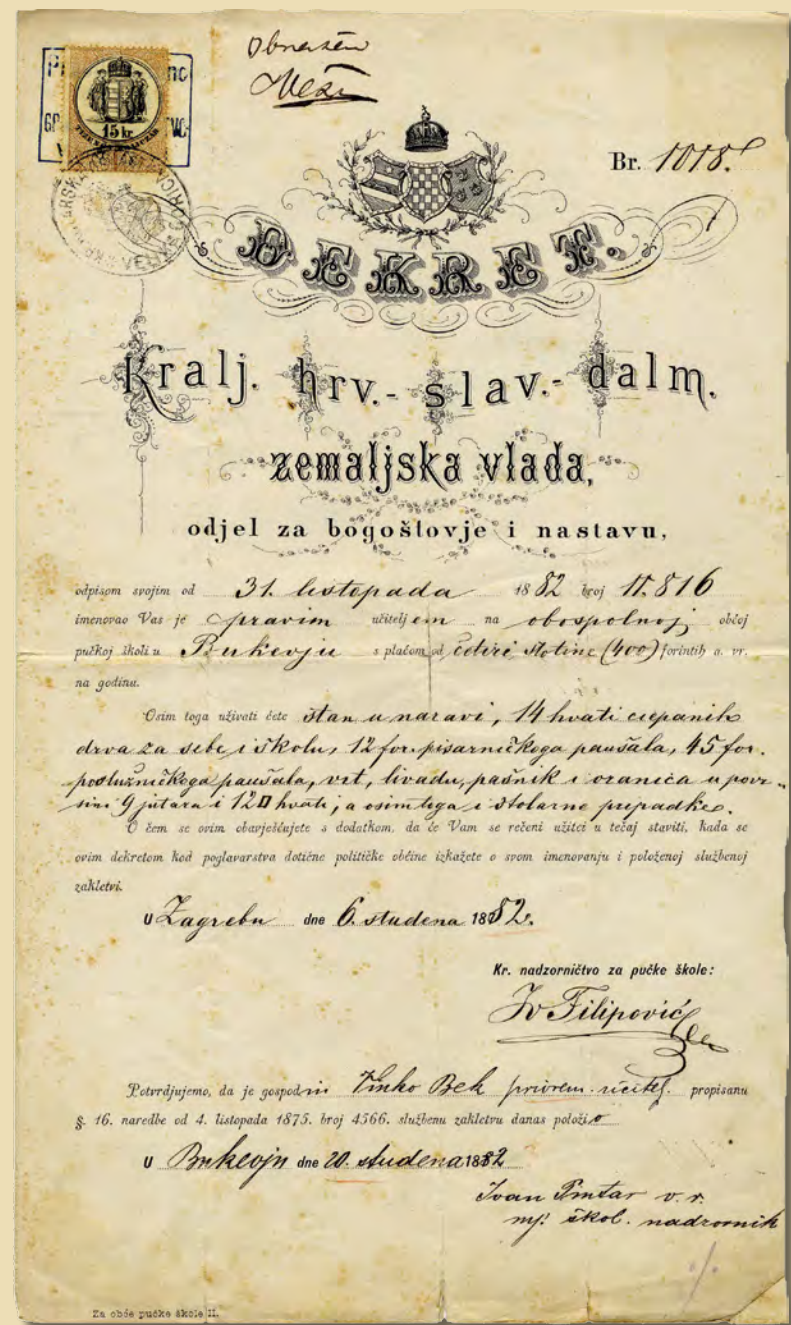 15 kr
Br. 1018.
DEKRET.
Kralj. hrv.-slav.-dalm.
zemaljska vlada,
odjel za bogoštovje i nastavu,
odpisom svojim od 31. listopada 1882 broj 11.816
imenovao Vas je pravim učiteljem na obospolnoj občoj
pučkoj školi u Bukevju s plaćom od četiri stotine (400) forintih a. vr.
na godinu.
Osim toga uživati ćete stan u naravi, 14 hvati ciepanih
drva za sebe i školu, 12 for. pisarničkoga paušala, 45 for.
poslužničkoga paušala, vrt, livadu, pašnik i oranica u povr-
šini 9 jutara i 12□ hvati, a osim toga i štolarne pripadke.
O čem se ovim obavješćujete s dodatkom, da će Vam se rečeni užitci u tečaj staviti, kada se
ovim dekretom kod poglavarstva dotične političke občine izkažete o svom imenovanju i položenoj službenoj
zakletvi.
U Zagrebu dne 6. studena 1882.
Kr. nadzorničtvo za pučke škole:
Iv Filipović
Potvrdjujemo, da je gospodin Vinko Bek privrem. učitelj. propisanu
§. 16. naredbe od 4. listopada 1875. broj 4566. službenu zakletvu danas položio
U Bukevju dne 20. studena 1882
Ivan Pintar v. r.
mj. škol. nadzornik
Za obće pučke škole II.